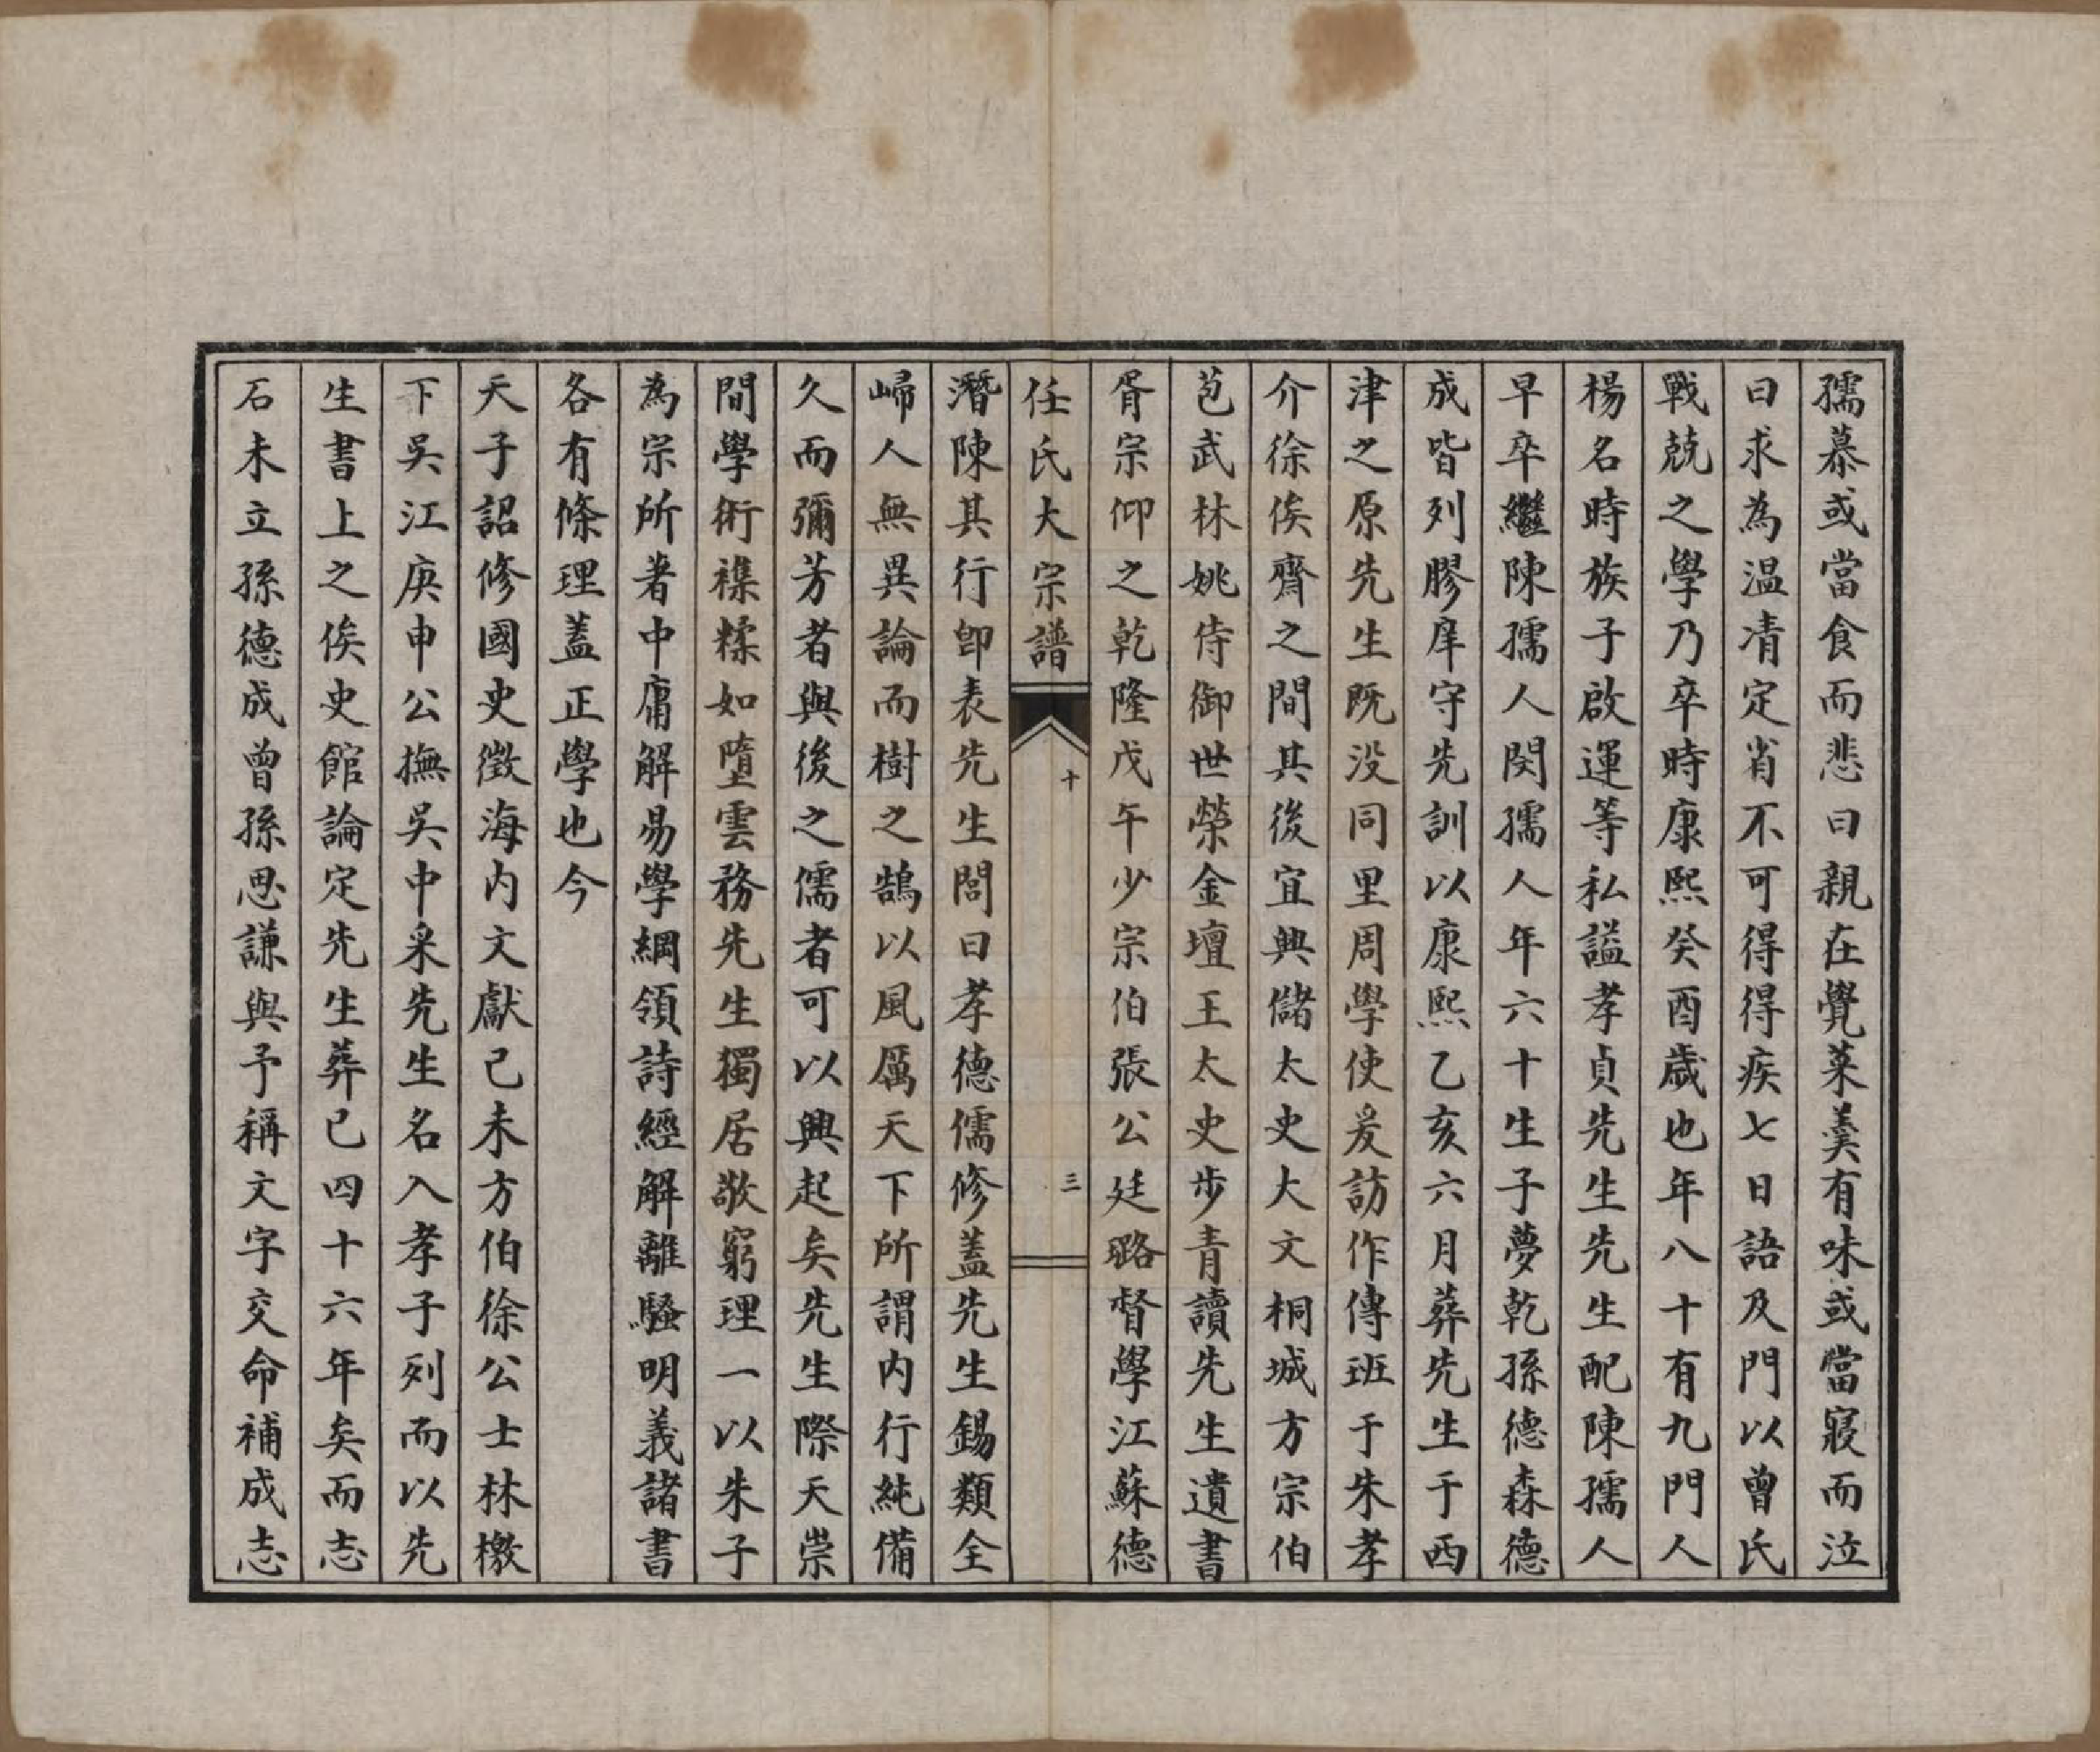 孺慕或當食而悲曰親在覺菜羹有味或當寢而泣
曰求為温凊定省不可得得疾七日語及門以曾氏
戰兢之學乃卒時康熙癸酉歲也年八十有九門人
楊名時族子啟運等私謚孝貞先生先生配陳孺人
早卒繼陳孺人閔孺人年六十生子夢乾孫德森德
成皆列膠庠守先訓以康熙乙亥六月葬先生于西
津之原先生既没同里周學使爰訪作傳班于朱孝
介徐俟齋之間其後宜興儲太史大文桐城方宗伯
苞武林姚侍御世榮金壇王太史步青讀先生遺書
胥宗仰之乾隆戊午少宗伯張公廷璐督學江蘇德
任氏大宗譜 十 三
潛陳其行卽表先生閭曰孝德儒修蓋先生錫類全
歸人無異論而樹之鵠以風厲天下所謂内行純備
久而彌芳者與後之儒者可以興起矣先生際天崇
間學術襍糅如墮雲務先生獨居敬窮理一以朱子
為宗所著中庸解易學綱領詩經解離騷明義諸書
各有條理蓋正學也今
天子詔修國史徵海内文獻己未方伯徐公士林檄
下吳江庚申公撫吳中采先生名入孝子列而以先
生書上之俟史館論定先生葬已四十六年矣而志
石未立孫德成曾孫思謙與予稱文字交命補成志